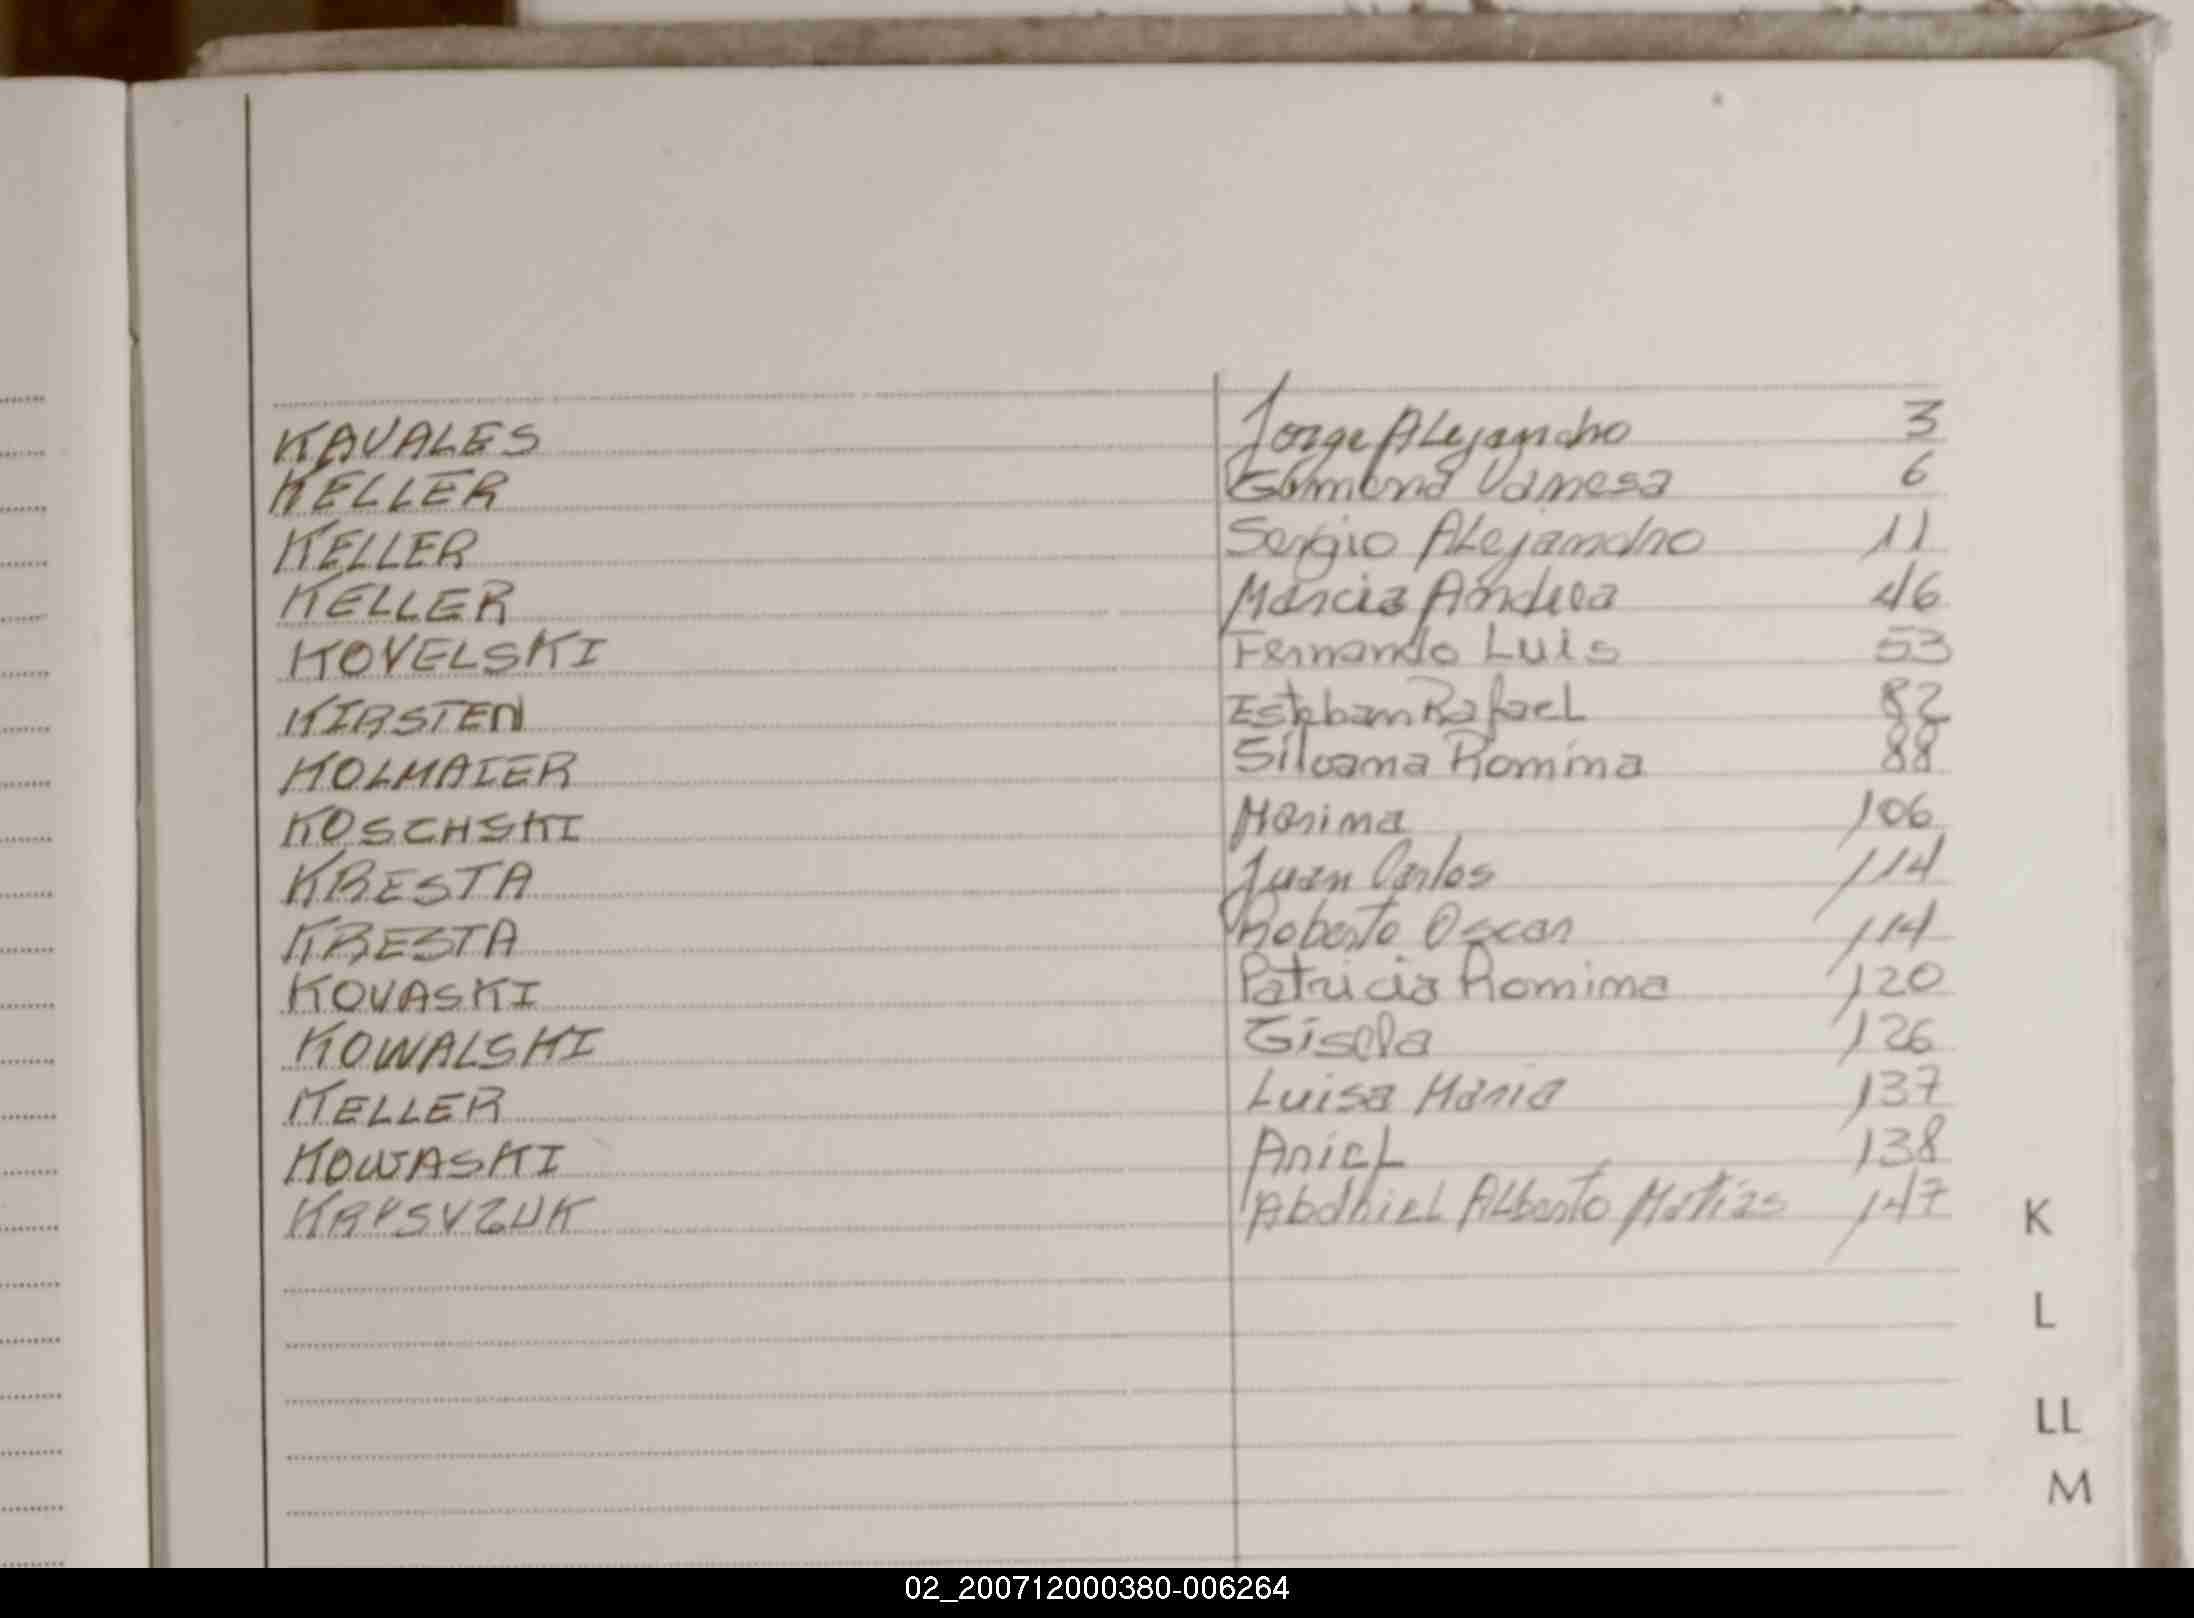 KAVALES Jorge Alejandro 3
KELLER Vanesa 6
KELLER Sergio Alejandro 11
KELLER Marcia Andrea 46
KOVELSKI Fernando Luis 53
KIRSTEN Esteban Rafael 82
KOLMAIER Silvana Romina 88
KOSCHSKI Marina 106
KRESTA Juan Carlos 114
KRESTA Roberto Oscar 114
KOVASKI Patricia Romina 120
KOWALSKI Gisela 126
KELLER Luisa Maria 137
KOWASKI Ariel 138
Alberto Matias 147
K
L
LL
M
02_200712000380-006264